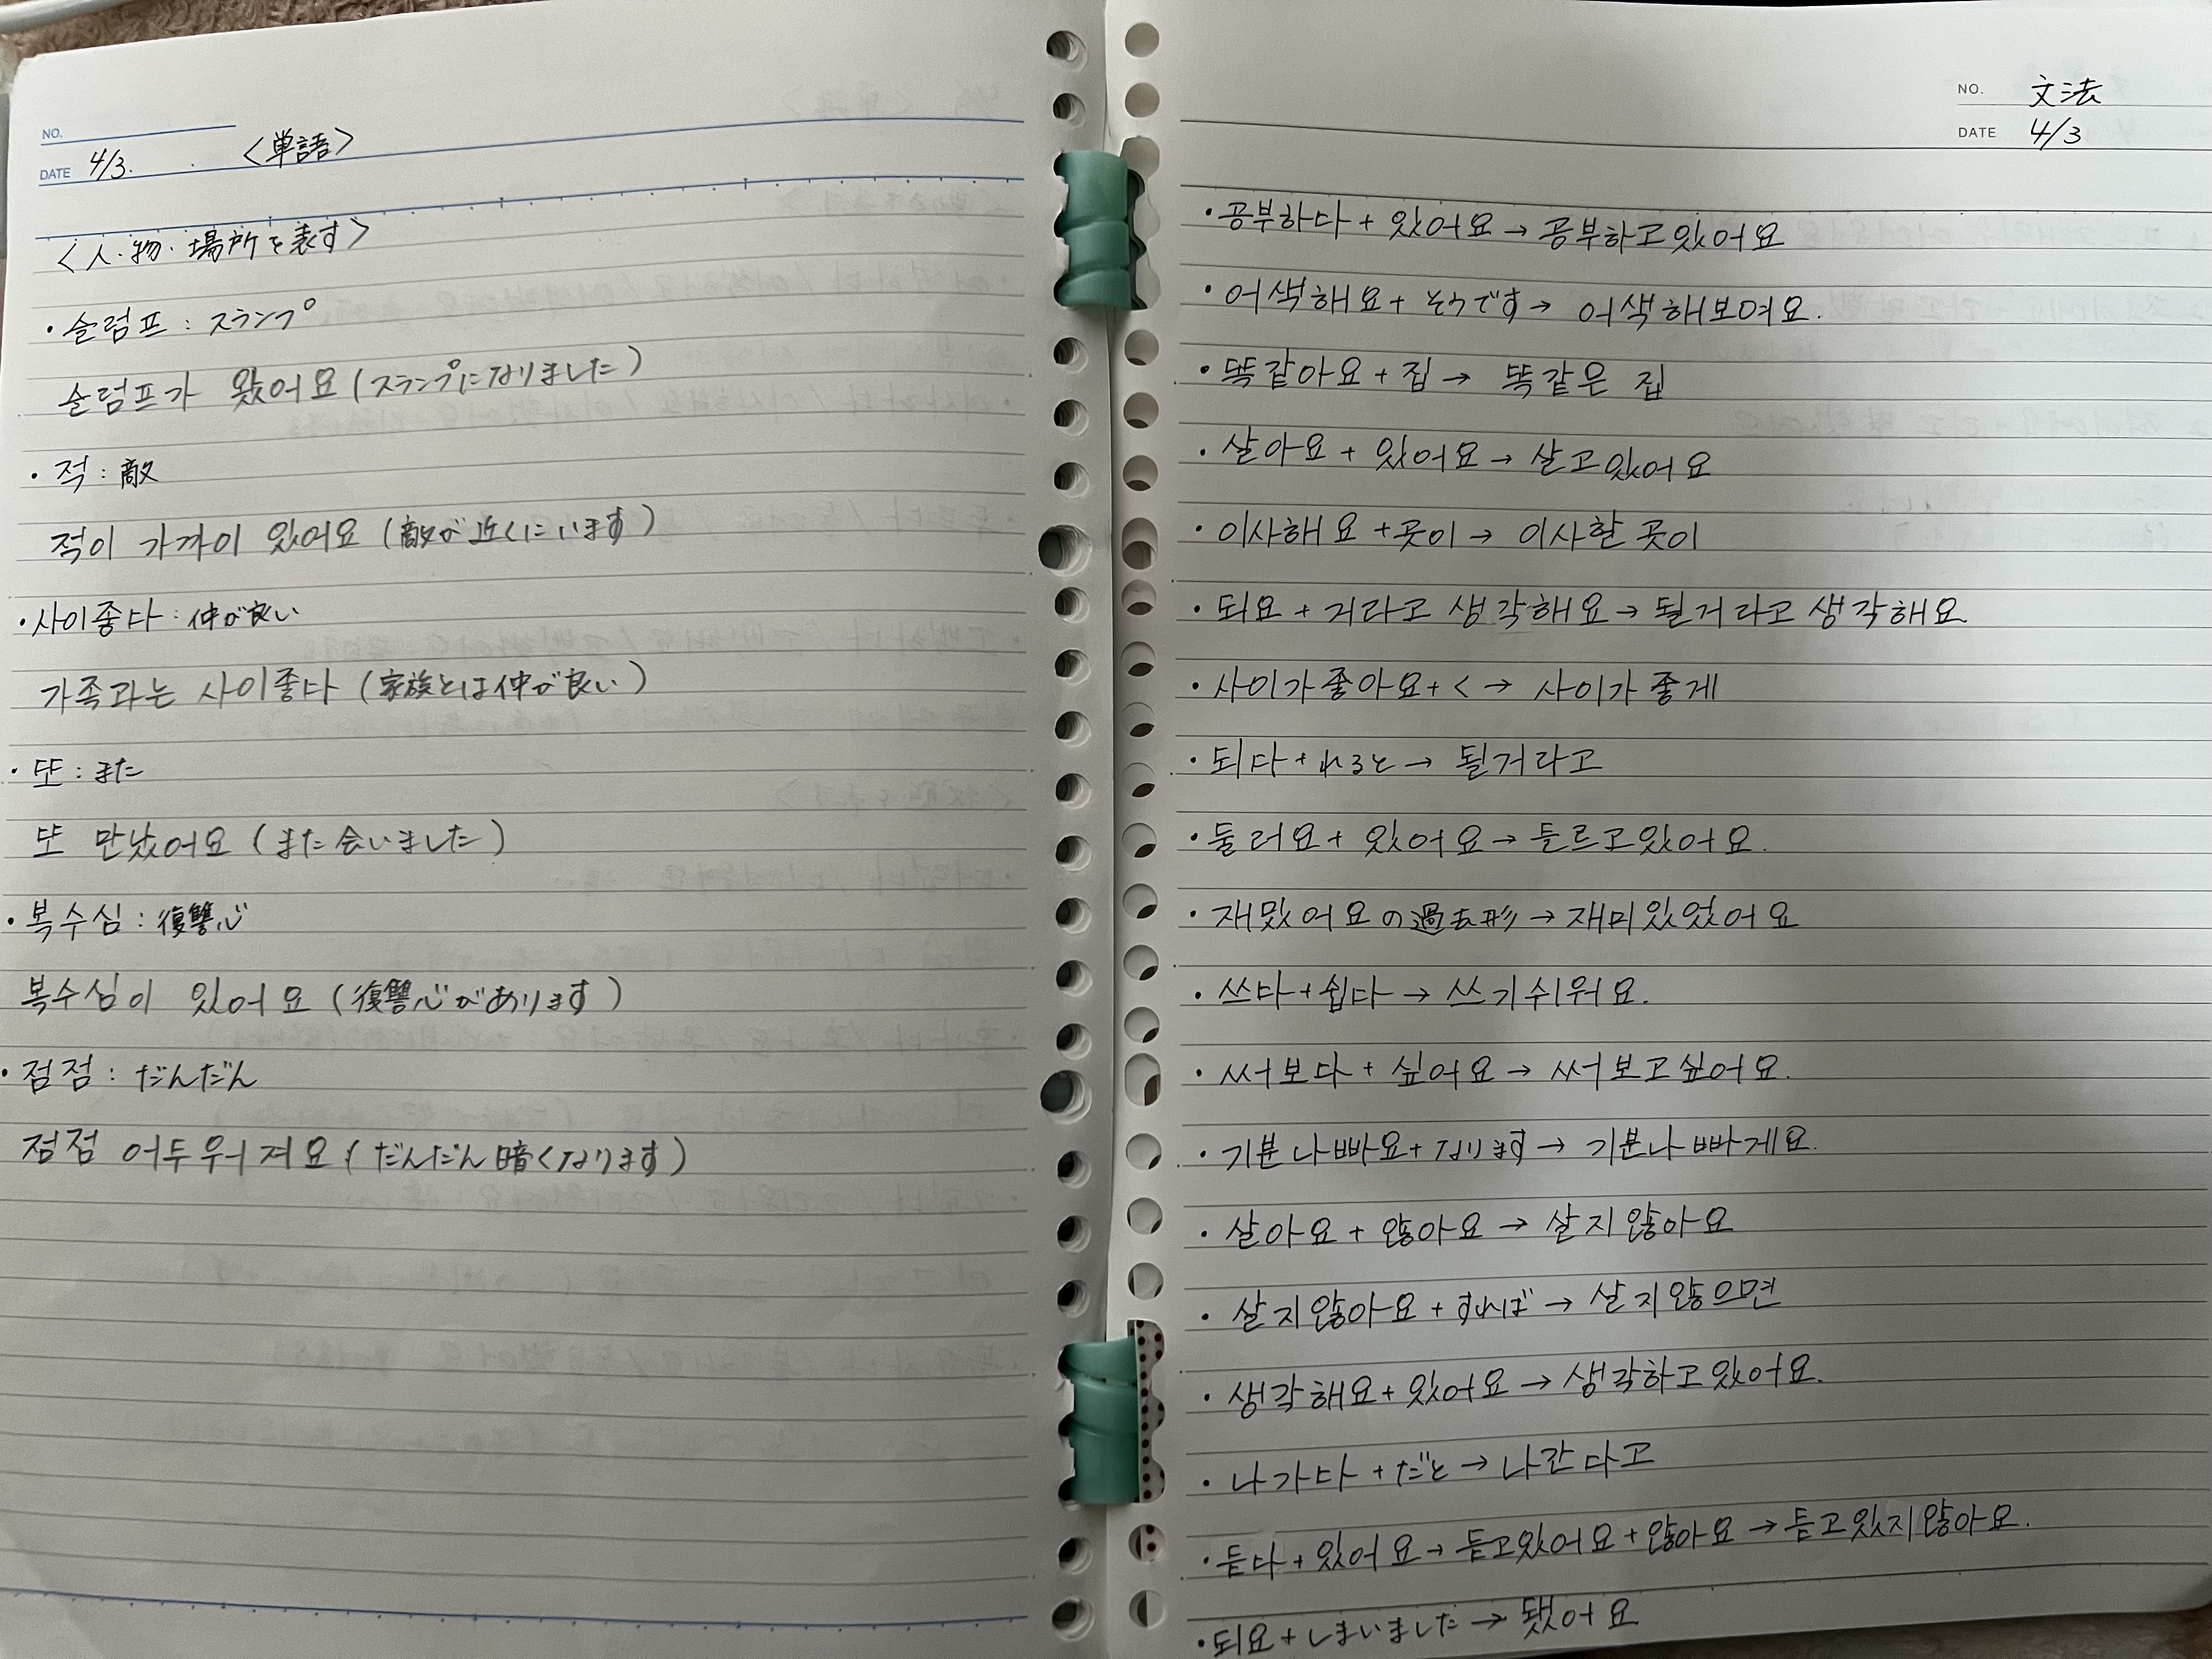 NO.
DATE 4/3. <単語>
<人・物・場所を表す>
・슬럼프 : スランプ
슬럼프가 왔어요 (スランプになりました)
・적 : 敵
적이 가까이 있어요 (敵が近くにいます)
・사이좋다 : 仲が良い
가족과는 사이좋다 (家族とは仲が良い)
・또 : また
또 만났어요 (また会いました)
・복수심 : 復讐心
복수심이 있어요 (復讐心があります)
・점점 : だんだん
점점 어두워져요 (だんだん暗くなります)
NO. 文法
DATE 4/3
・공부하다 + 있어요 → 공부하고있어요
・어색해요 + そうです → 어색해보여요.
・똑같아요 + 집 → 똑같은 집
・살아요 + 있어요 → 살고있어요
・이사해요 + 곳이 → 이사할 곳이
・되요 + 거라고 생각해요 → 될거라고 생각해요.
・사이가좋아요 + く → 사이가 좋게
・되다 + れると → 될거라고
・둘러요 + 있어요 → 들르고있어요.
・재밌어요の過去形 → 재미있었어요
・쓰다 + 쉽다 → 쓰기쉬워요.
・써보다 + 싶어요 → 써보고싶어요.
・기분나빠요 + なります → 기분나빠게요.
・살아요 + 않아요 → 살지않아요
・살지않아요 + すれば → 살지않으면
・생각해요 + 있어요 → 생각하고있어요.
・나가다 + だと → 나간다고
・듣다 + 있어요 → 듣고있어요 + 않아요 → 듣고있지않아요.
・되요 + しまいました → 됐어요